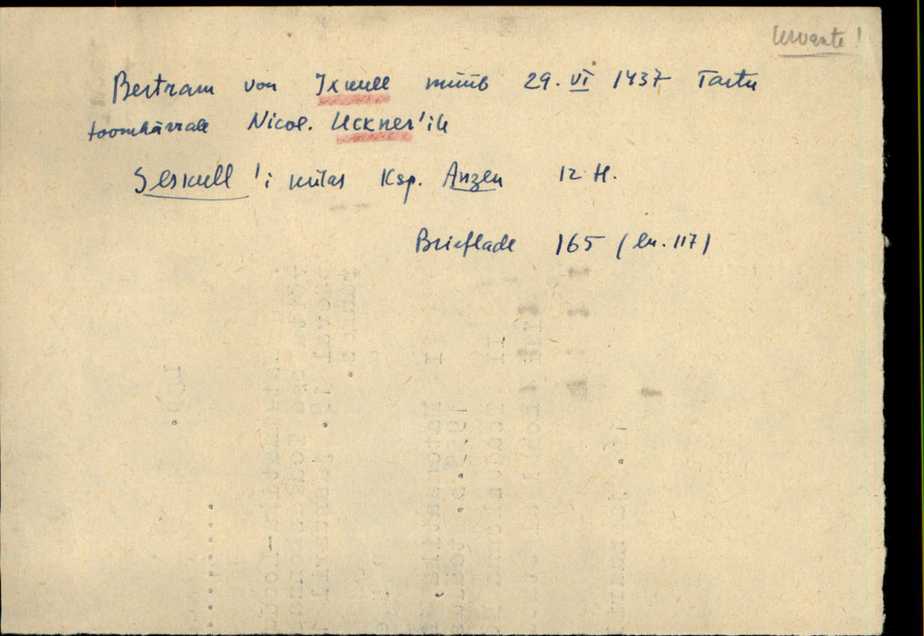 Bertram von Ixkull müüb 29. VI 1437 Tartu
toomhärrale Nicol. Uckner'ile
Seskull'i külas Ksp. Anzen 12 H.
Brieflade 165 (lk. 117)